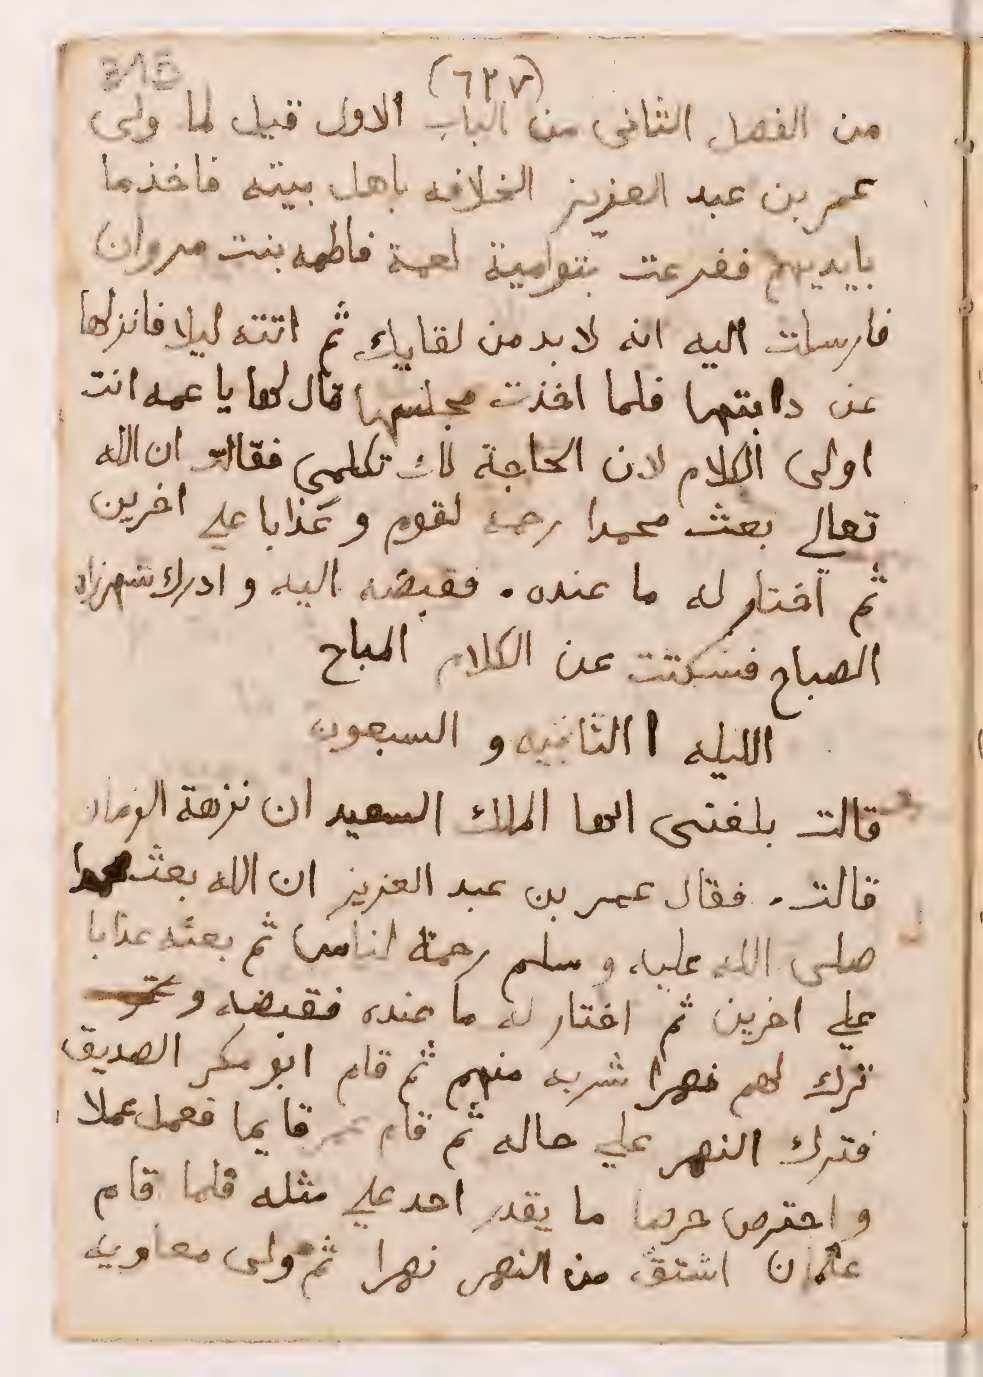 (٦٢٧)
من الفصل الثانى من الباب الاول قيل لما ولى
عمر بن عبد العزيز الخلافه باهل بيته فاخذ ما
بايديهم ففرعت بنواميه لعمة فاطمه بنت مروان
فارسلت اليه انه لا بد من لقايك ثم اتته ليلا فانزلها
عن دابتها فلما اخذت مجلسها قال لها يا عمه انت
اولى الكلام لان الحاجة لك تكلمى فقالت ان الله
تعالي بعث محمدا رحمة لقوم و عذابا علي اخرين
ثم اختار له ما عنده . فقبضه اليه و ادرك شهرزاد
الصباح فسكتت عن الكلام المباح
الليله الثانيه و السبعون
قالت بلغنى ايها الملك السعيد ان نزهة الزمان
قالت . فقال عمر بن عبد العزيز ان الله بعث محمدا
صلى الله عليه و سلم رحمة لناس ثم بعثه عذابا
علي اخرين ثم اختار له ما عنده فقبضه و
ترك لهم نهرا شربه منهم ثم قام ابو بكر الصديق
فترك النهر علي حاله ثم قام عمر قايما فعمل عملا
و احترص حرصا ما يقدر احد علي مثله فلما قام
عثمان اشتق من النهر نهرا ثم ولى معاويه